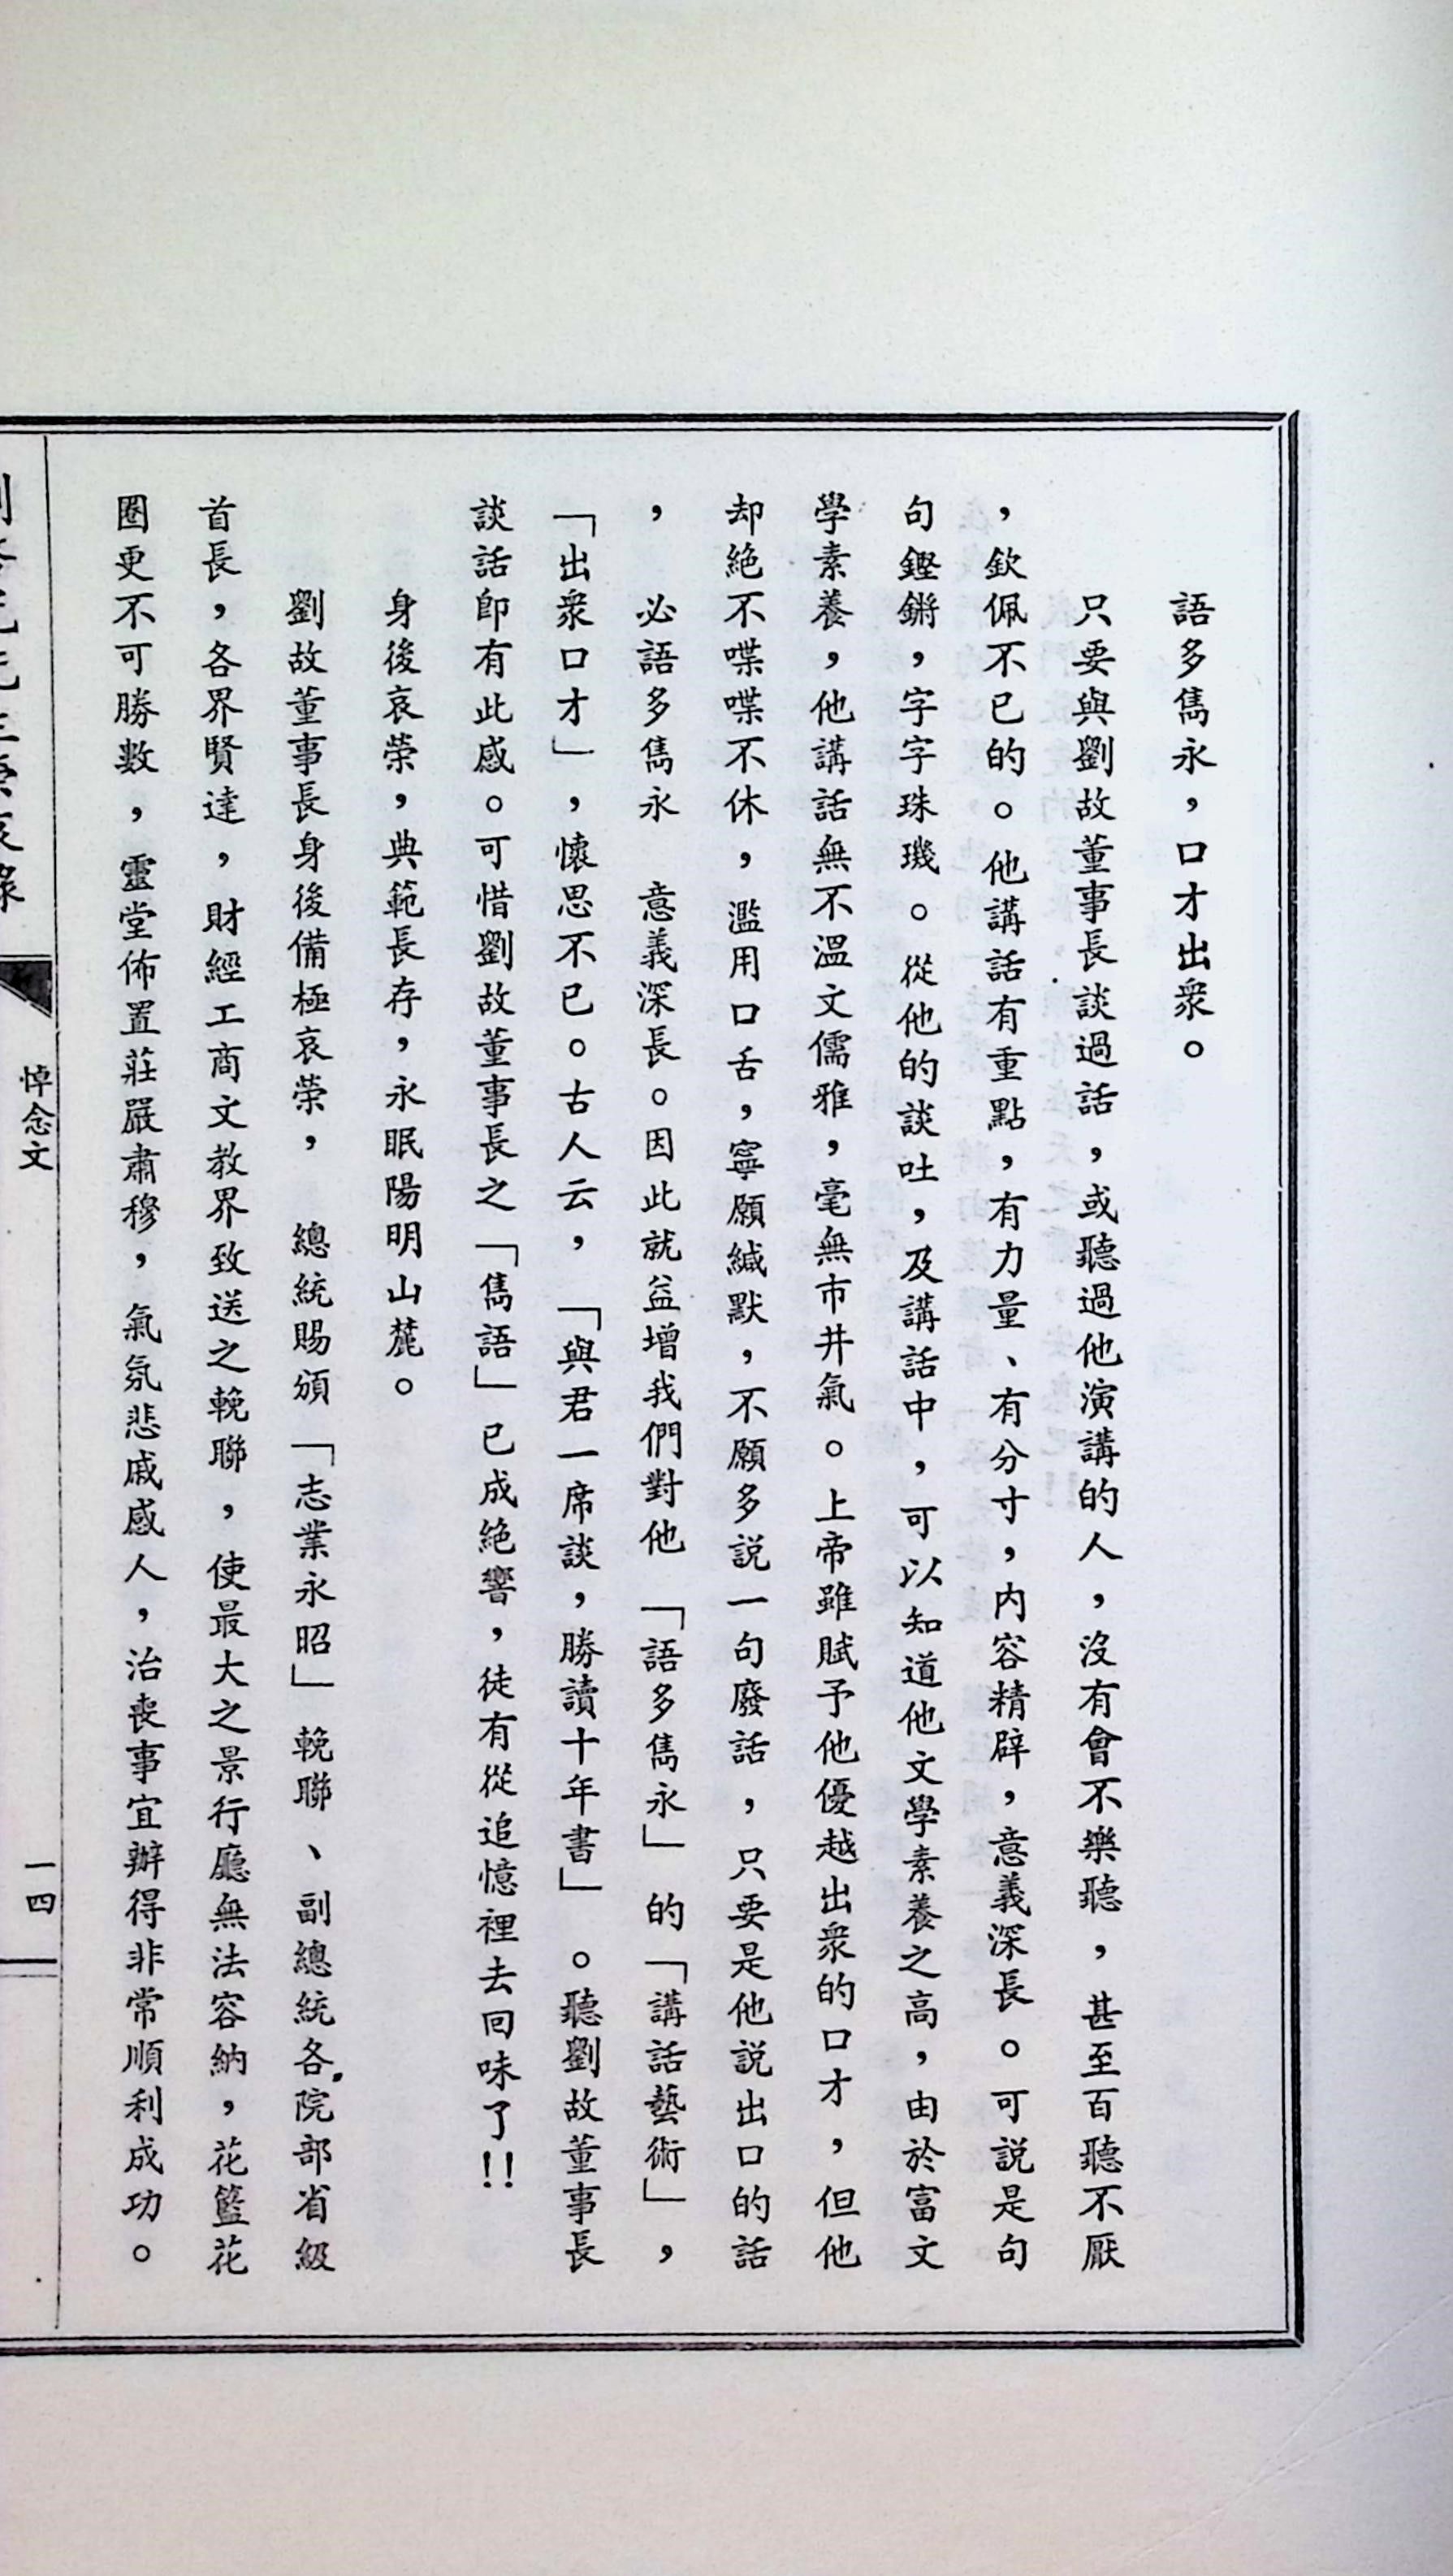 語多雋永，口才出衆。
只要與劉故董事長談過話，或聽過他演講的人，沒有會不樂聽，甚至百聽不厭
，欽佩不已的。他講話有重點，有力量、有分寸，内容精辟，意義深長。可說是句
句鏗鏘，字字珠璣。從他的談吐，及講話中，可以知道他文學素養之高，由於富文
學素養，他講話無不溫文儒雅，毫無市井氣。上帝雖賦予他優越出衆的口才，但他
却絕不喋喋不休，濫用口舌，寧願緘默，不願多說一句廢話，只要是他說出口的話
，　必語多雋永　意義深長。因此就益增我們對他「語多雋永」的「講話藝術」，
「出衆口才」，懷思不已。古人云，「與君一席談，勝讀十年書」。聽劉故董事長
談話卽有此感。可惜劉故董事長之「雋語」已成絕響，徒有從追憶裡去回味了!!
身後哀榮，典範長存，永眠陽明山麓。
劉故董事長身後備極哀榮，　總統賜頒「志業永昭」輓聯、副總統各院部省級
首長，各界賢達，財經工商文教界致送之輓聯，使最大之景行廳無法容納，花籃花
圈更不可勝數，靈堂佈置莊嚴肅穆，氣氛悲戚感人，治喪事宜辦得非常順利成功。
悼念文
一四